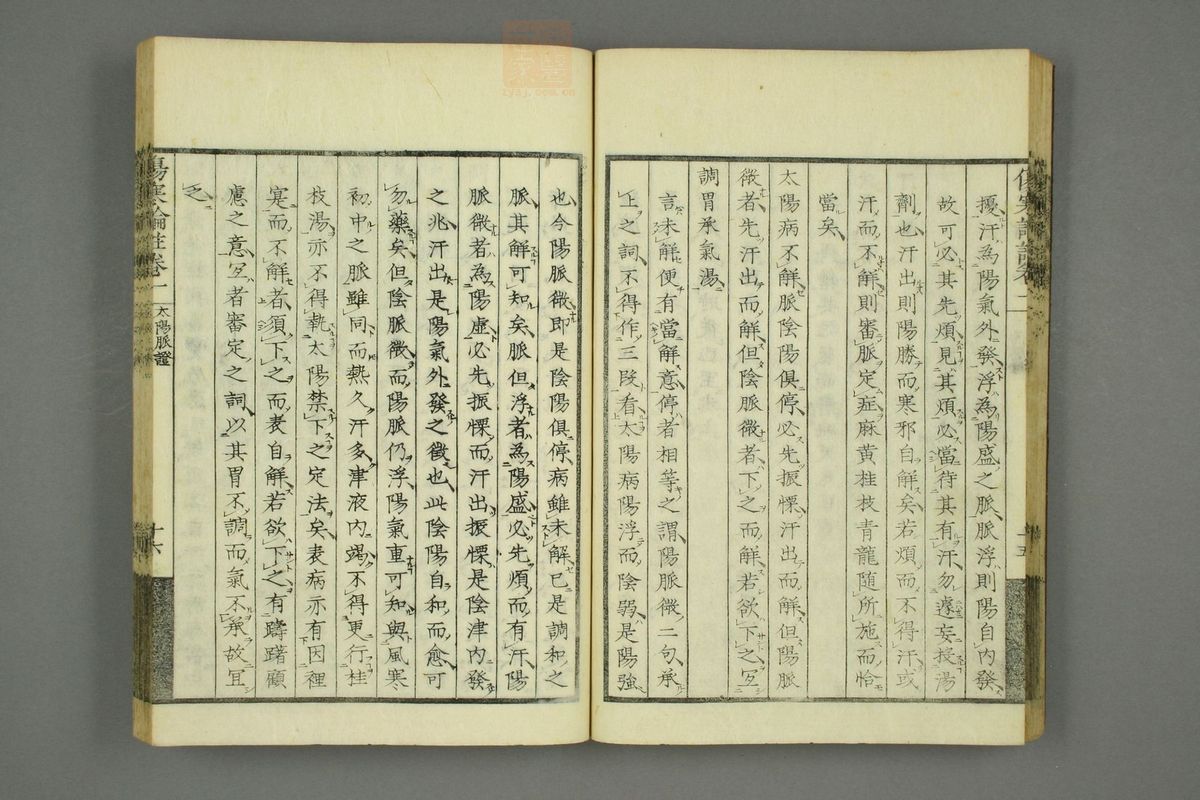 擾汗為陽氣外發浮為陽盛之脈脈浮則陽自內發
故可必其先煩見其煩必當待其有汗勿遽妄投湯
劑也汗出則陽勝而寒邪自解矣若煩而不得汗或
汗而不解則審脈定症麻黄桂枝青龍隨所施而恰
當矣
太陽病不解脈陰陽俱停必先振慄汗出而解但陽脈
微者先汗出而解但陰脈微者下之而解若欲下之宜
調胃承氣湯
言未解便有當解意停者相等之謂陽脈微二句承
上之詞不得作三段看太陽病陽浮而陰弱是陽強
也今陽脈微即是陰陽俱停病雖未解已是調和之
脈其解可知矣脈但浮者為陽盛必先煩而有汗陽
脈微者為陽虛必先振慄而汗出振慄是陰津內發
之兆汗出是陽氣外發之徵也此陰陽自和而愈可
勿藥矣但陰脈微而陽脈仍浮陽氣重可知與風寒
初中之脈雖同而熱久汗多津液內竭不得更行桂
枝湯亦不得執太陽禁下之定法矣表病亦有因裡
寔而不解者須下之而表自解若欲下之有躊躇顧
慮之意宜者審定之詞以其胃不調而氣不承故宜
之
傷寒論註卷一
太陽脈證
十六